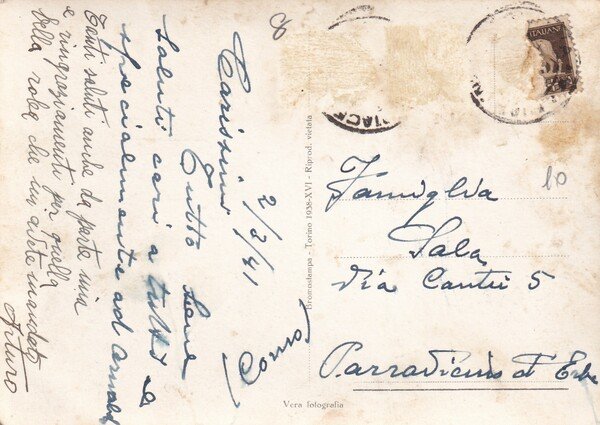 2/3/41
Carissimi
Tutto bene
saluti cari a tutti e
specialmente ad Arnaldo
Tanti saluti anche da parte mia
e ringraziamenti per quella
della roba che mi avete mandato
Arturo
Bromostampa - Torino 1938-XVI - Riprod. vietata
Vera fotografia
ITALIANE
PIACE
10
Famiglia
Sala
Via Cantù 5
Parravicino d' Erba